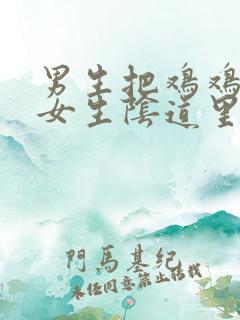 男生把鸡鸡
女生陰道里
門馬基紀
未经同意禁止转载